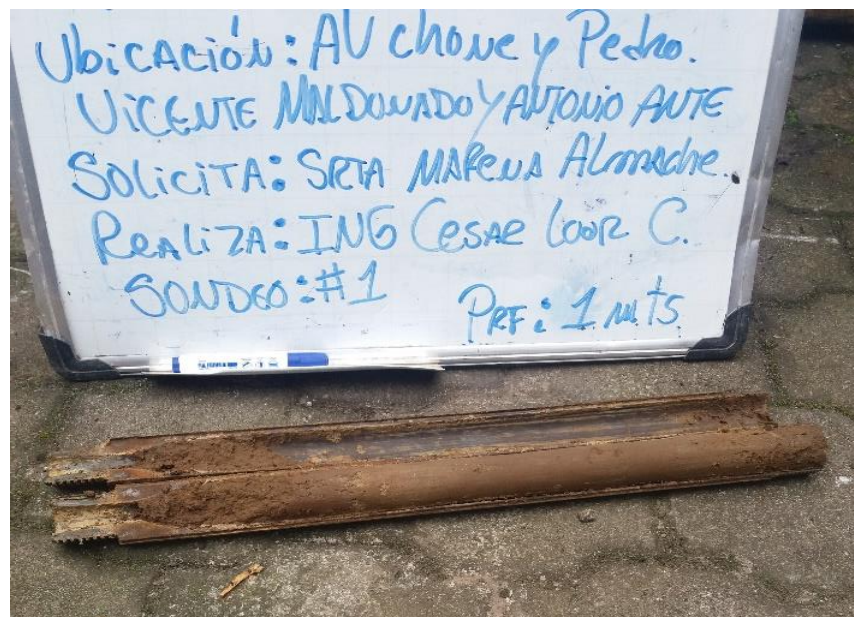 Ubicación: AV chone y Pedro.
VICENTE MALDONADO Y ANTONIO ANTE
SOLICITA: SRTA MARENA Almache.
REALIZA: ING CESAR LOOR C.
SONDEO: #1
PRF: 1 mts